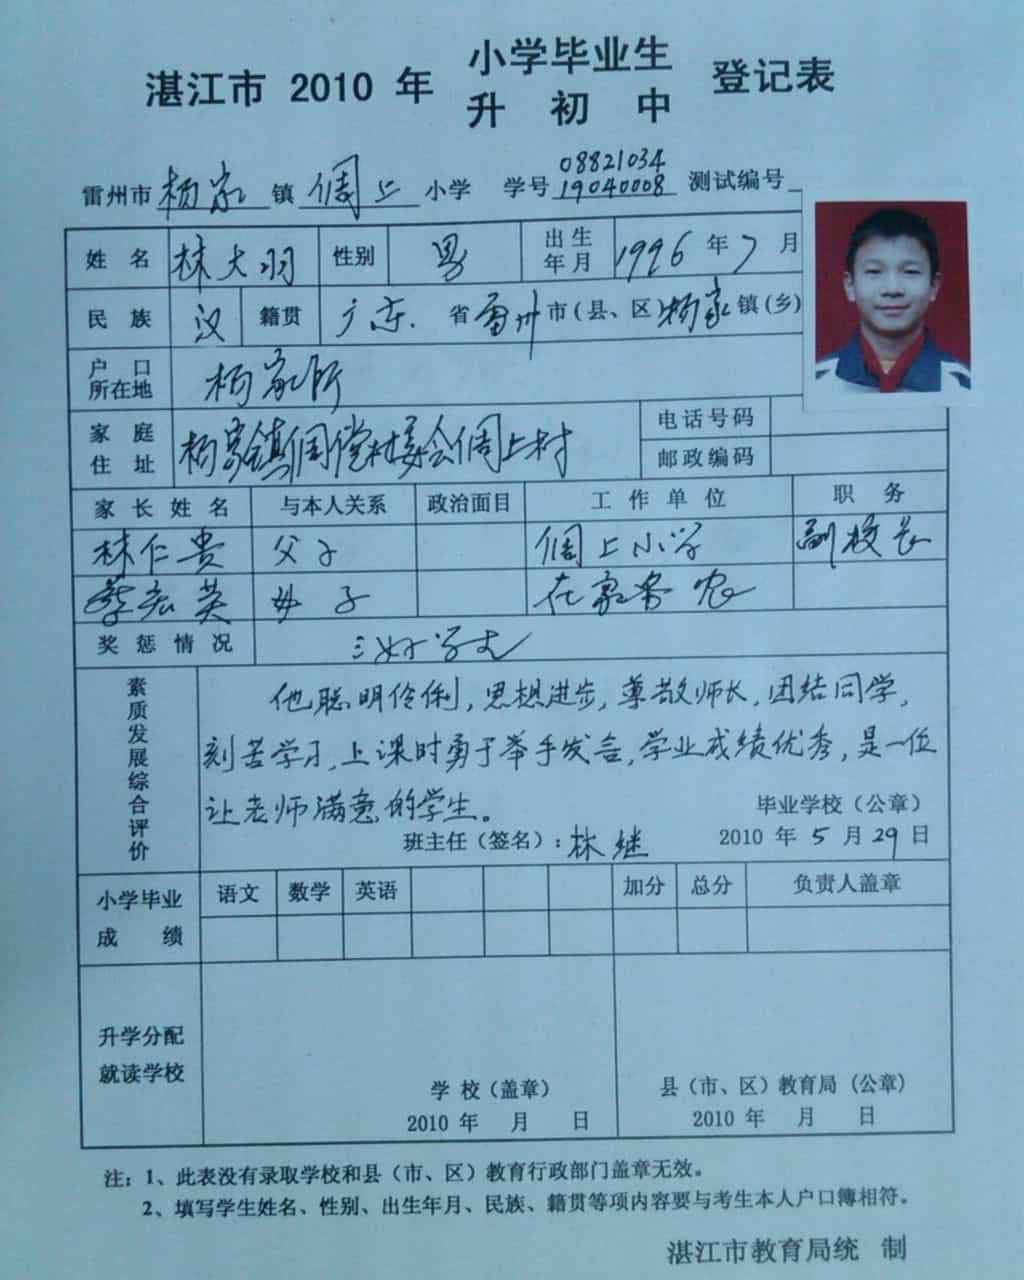 湛江市 2010 年 小学毕业生 登记表
升 初 中
雷州市 杨家 镇 倜上 小学 学号 08821034 19040008 测试编号
姓 名 林大羽 性别 男 出生年月 1996 年 7 月
民 族 汉 籍贯 广东 省 雷州 市(县、区) 杨家 镇(乡)
户 口 所在地 杨家所
家 庭 住 址 杨家镇倜党村委会倜上村 电话号码
邮政编码
家 长 姓 名 与本人关系 政治面目 工 作 单 位 职 务
林仁贵 父子 倜上小学 副校长
蔡宏英 母子 在家务农
奖 惩 情 况 三好学生
素质发展综合评价
他聪明伶俐,思想进步,尊敬师长,团结同学,
刻苦学习,上课时勇于举手发言,学业成绩优秀,是一位
让老师满意的学生。
毕业学校(公章)
班主任(签名):林继 2010 年 5 月 29 日
小学毕业成 绩 语文 数学 英语 加分 总分 负责人盖章
升学分配
就读学校
学 校(盖章) 县(市、区)教育局(公章)
2010 年 月 日 2010 年 月 日
注:1、此表没有录取学校和县(市、区)教育行政部门盖章无效。
2、填写学生姓名、性别、出生年月、民族、籍贯等项内容要与考生本人户口簿相符。
湛江市教育局统 制